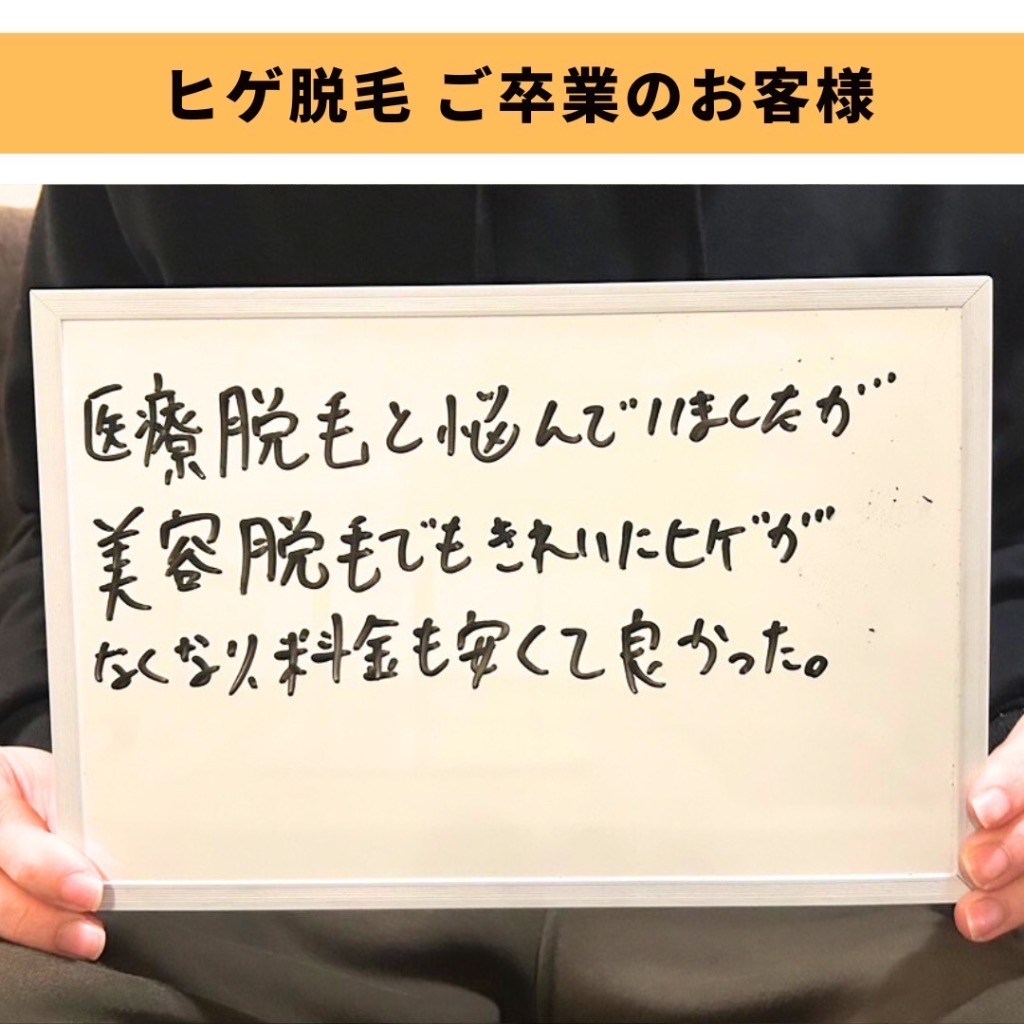 ヒゲ脱毛 ご卒業のお客様
医療脱毛と悩んでいましたが
美容脱毛でもきれいにヒゲが
なくなり、料金も安くて良かった。